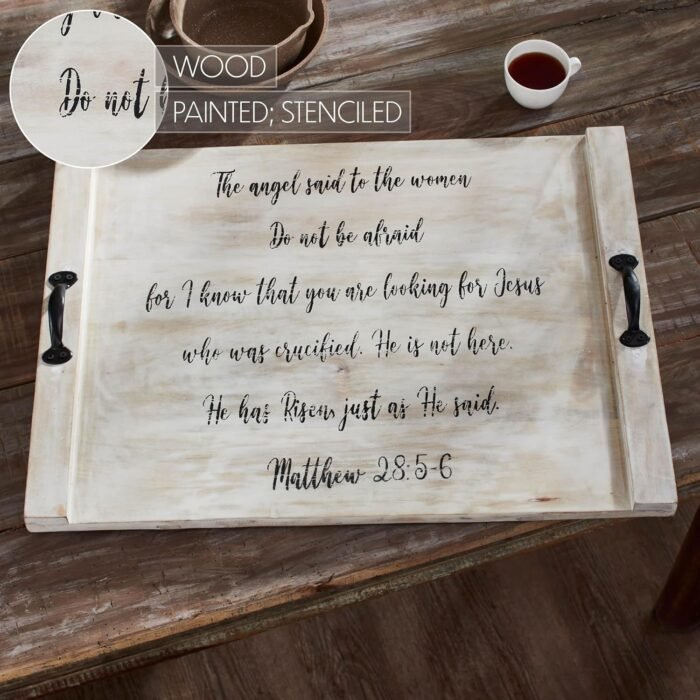 Do not
WOOD
PAINTED; STENCILED
The angel said to the women
Do not be afraid
for I know that you are looking for Jesus
who was crucified. He is not here.
He has Risen, just as He said.
Matthew 28:5-6